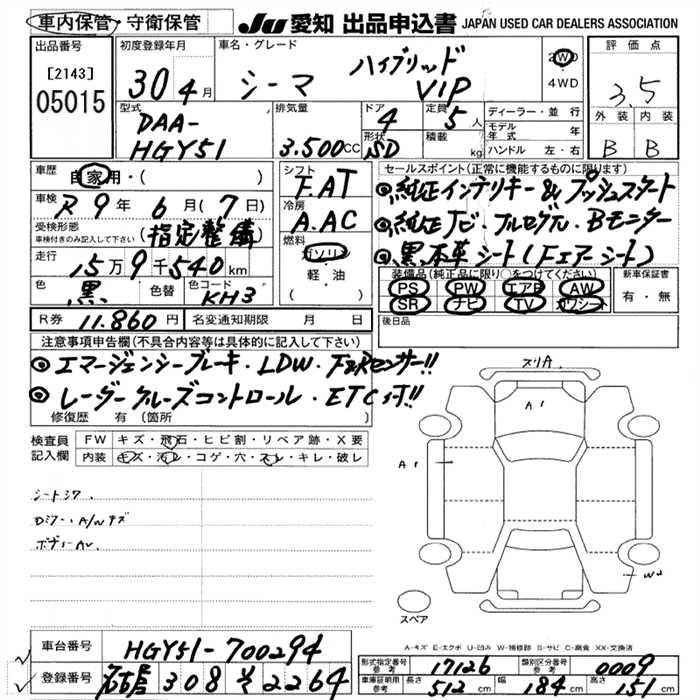 車内保管・守衛保管 JU 愛知 出品申込書 JAPAN USED CAR DEALERS ASSOCIATION
出品番号 初度登録年月 車名・グレード 評価点
[2143] 30 4月 シーマ ハイブリッド VIP 2WD 3.5
05015 4WD
型式 排気量 ドア 定員 ディーラー・並行 外装 内装
DAA- 4 5人 モデル年式 年
HGY51 3.500CC 形状 SD 積載 kg ハンドル 左・右 B B
車歴 自家用・( ) シフト セールスポイント(正常に機能するものに限ります)
F.AT ◎純正インテリキー&プッシュスタート
車検 R9年6月(7日) 冷房 ◎純正ナビ・フルセグTV・Bモニター
受検形態 (指定整備) A.AC ◎黒本革シート(Fエアーシート)
車検付きのみ記入して下さい
走行 15万9千540km 燃料 装備品(純正品に限り○をつけてください) 新車保証書
ガソリン PS PW エアB AW 有・無
色 黒 色替 色コード KH3 軽・油 SR ナビ TV カワシート
R券 11.860円 名変通知期限 月 日 後日品
注意事項申告欄(不具合内容等は具体的に記入して下さい)
◎エマージェンシーブレーキ・LDW・F&Rセンサー!!
◎レーダークルーズコントロール・ETC付!!
修復歴 有(箇所
検査員 FW キズ・飛石・ヒビ割・リペア跡・X要
記入欄 内装 キズ・汚レ・コゲ・穴・スレ・キレ・破レ
スリA
A1
A1
シートシワ
Dミラー・A/Wキズ
W2
スペア
A-キズ E-エクボ U-凹み W-補修跡 S-サビ C-腐食 XX-交換済
車台番号 HGY51-700294 形式指定番号 参考 17126 類別区分番号 参考 0009
登録番号 308 そ 2264 車庫証明用 参考 長さ 512cm 幅 184cm 高さ 151cm